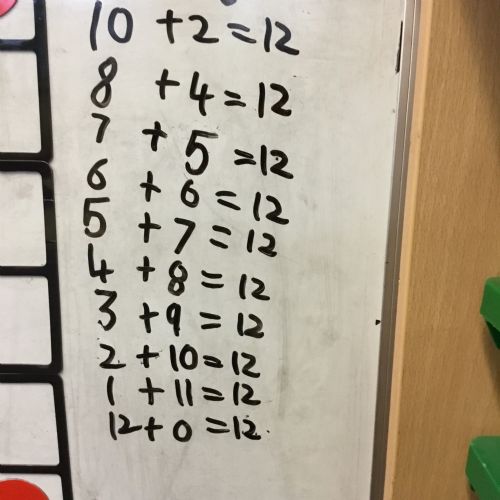 10 + 2 = 12
8 + 4 = 12
7 + 5 = 12
6 + 6 = 12
5 + 7 = 12
4 + 8 = 12
3 + 9 = 12
2 + 10 = 12
1 + 11 = 12
12 + 0 = 12